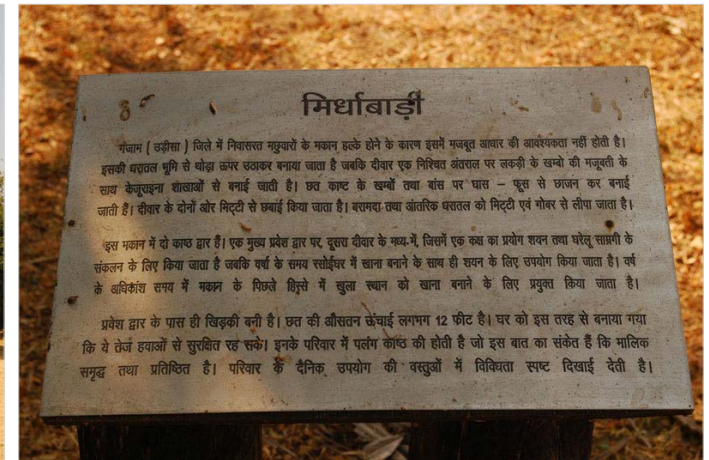 मिर्धाबाड़ी
गंजाम ( उड़ीसा ) जिले में निवासरत मछुयारों के मकान हल्के होने के कारण इसमें मजबूत आधार की आवश्यकता नहीं होती है।
इसकी धरातल भूमि से थोड़ा ऊपर उठाकर बनाया जाता है जबकि दीवार एक निश्चित अंतराल पर लकड़ी के खम्बो की मजबूती के
साथ केजूराइना शाखाओं से बनाई जाती है। छत काष्ट के खम्बों तथा बांस पर घास – फूस से छाजन कर बनाई
जाती हैं। दीवार के दोनों ओर मिट्टी से छबाई किया जाता है। बरामदा तथा आंतरिक धरातल को मिट्टी एवं गोबर से लीपा जाता है।
इस मकान में दो काष्ठ द्वार हैं। एक मुख्य प्रवेश द्वार पर, दूसरा दीवार के मध्य में, जिसमें एक कक्ष का प्रयोग शयन तथा घरेलू सामग्री के
संकलन के लिए किया जाता है जबकि वर्षा के समय रसोईघर में खाना बनाने के साथ ही शयन के लिए उपयोग किया जाता है। वर्ष
के अधिकांश समय में मकान के पिछले हिस्से में खुला स्थान को खाना बनाने के लिए प्रयुक्त किया जाता है।
प्रवेश द्वार के पास ही खिड़की बनी है। छत की औसतन ऊंचाई लगभग 12 फीट है। घर को इस तरह से बनाया गया
कि ये तेज हवाओं से सुरक्षित रह सके। इनके परिवार में पलंग काष्ठ की होती है जो इस बात का संकेत हैं कि मालिक
समृद्ध तथा प्रतिष्ठित है। परिवार के दैनिक उपयोग की वस्तुओं में विविधता स्पष्ट दिखाई देती है।